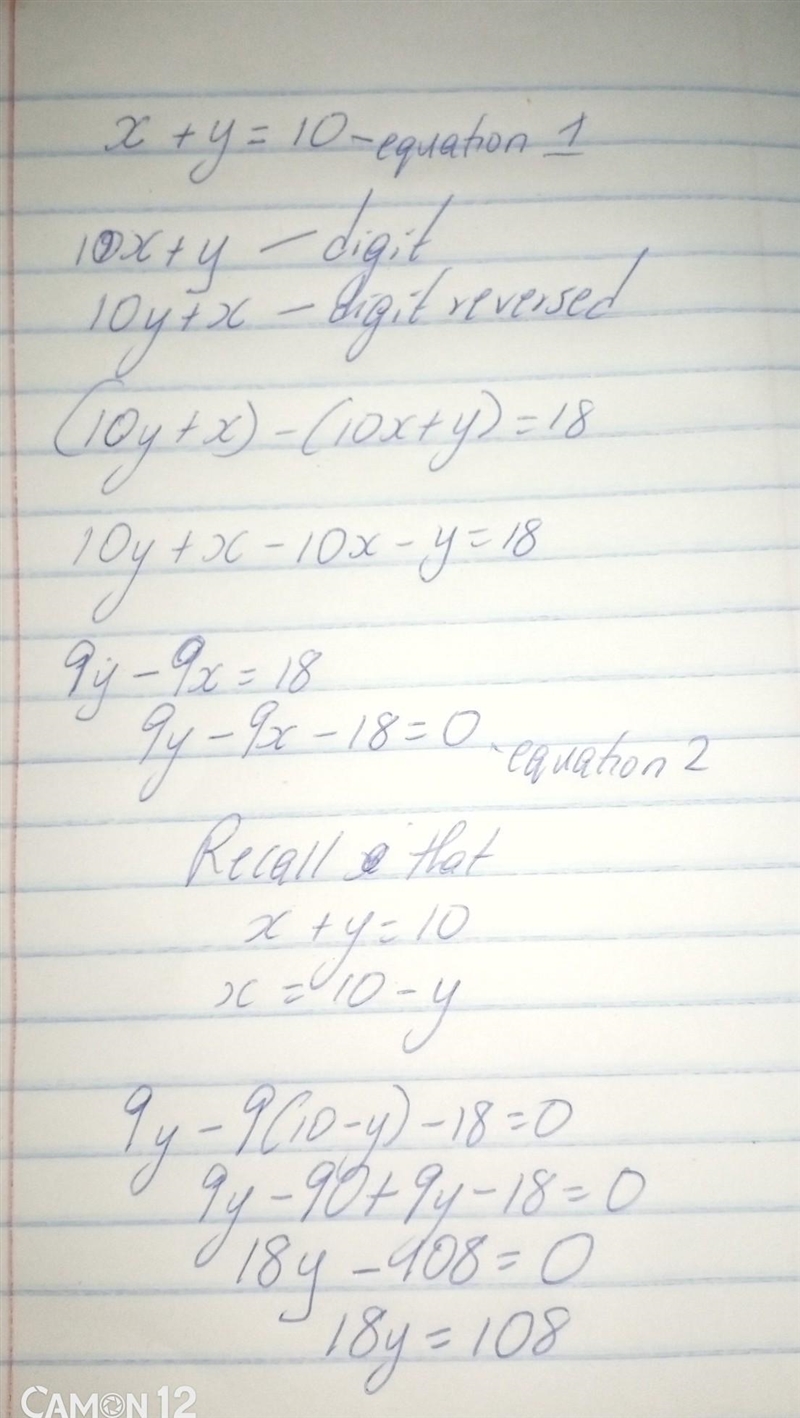 x + y = 10 - equation 1
10x + y - digit
10y + x - digit reversed
(10y + x) - (10x + y) = 18
10y + x - 10x - y = 18
9y - 9x = 18
9y - 9x - 18 = 0 - equation 2
Recall that
x + y = 10
x = 10 - y
9y - 9(10 - y) - 18 = 0
9y - 90 + 9y - 18 = 0
18y - 108 = 0
18y = 108
CAMON 12